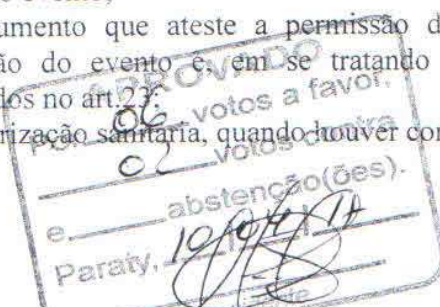 umento que ateste a permissão d
ão do evento e, em se tratando
dos no art.23;
rização sanitária, quando houver con
APROVADO
Por 06 votos a favor,
02 votos contra
e, abstenção(ões).
Paraty, 10/